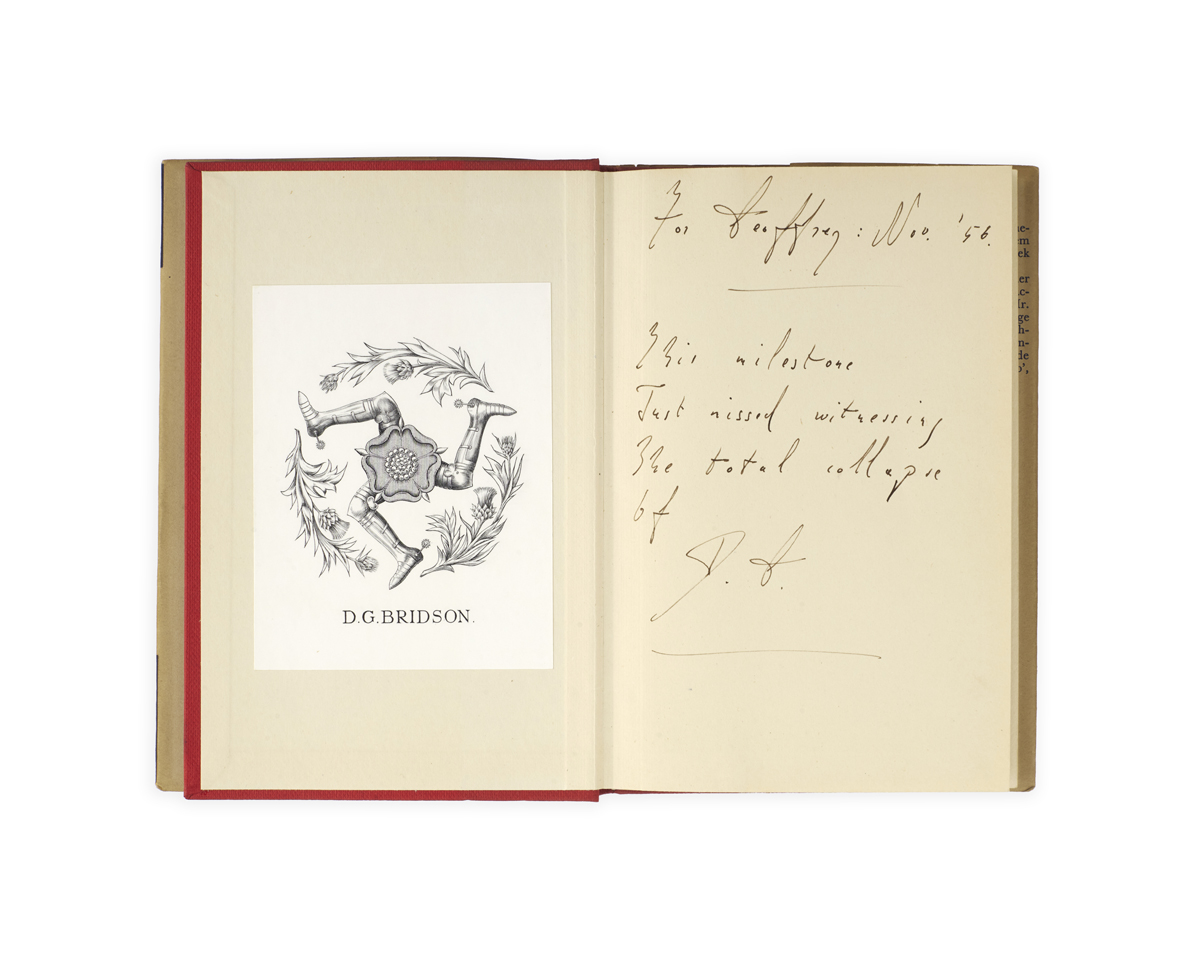 D.G.BRIDSON.
For Geoffrey: Nov. '56.
This milestone
Just missed witnessing
The total collapse
of
D. G.